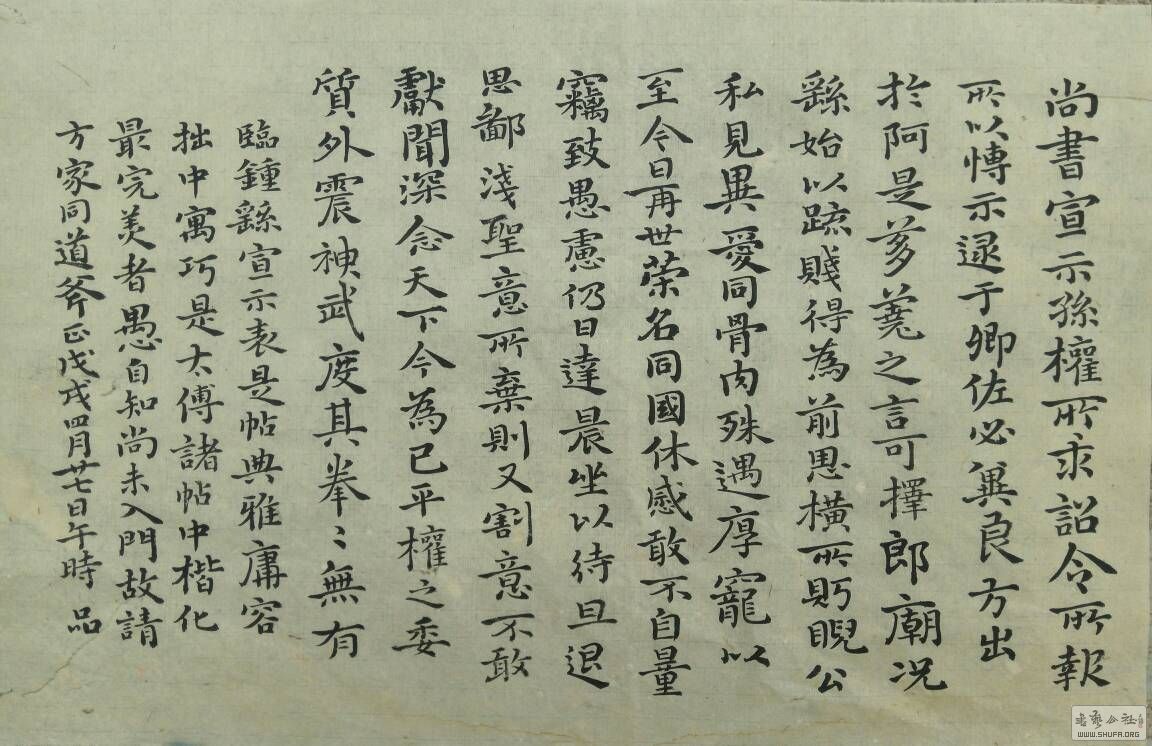 尚書宣示孫權所求詔令所報
所以博示逮于卿佐必冀良方出
於阿是芻蕘之言可擇郎廟況
繇始以疏賤得為前恩橫所眄睨公
私見異愛同骨肉殊遇厚寵以
至今日再世荣名同國休慼敢不自量
竊致愚慮仍日達晨坐以待旦退
思鄙淺聖意所棄則又割意不敢
獻聞深念天下今為已平權之委
質外震神武度其拳〻無有
臨鍾繇宣示表是帖典雅庸容
拙中寓巧是太傅諸帖中楷化
最完美者愚自知尚未入門故請
方家同道斧正戊戌四月廿七日午時 品
WWW.SHUFA.ORG